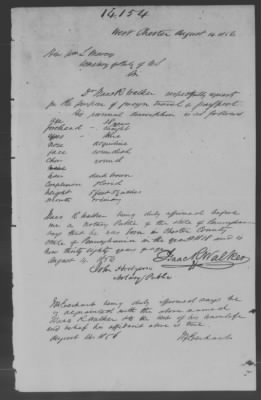 14,154
West Chester August 14 1856
Hon Wm L Marcy
Secretary of State of U.S
Sir
Dr Isaac R Walker respectfully request
for the purpose of foreign travel a passport.
His personal description is as follows
Age 38 years
forehead straight
eyes blue
nose aquiline
face roundish
chin round
hair dark brown
Complexion florid
height 5 feet 8 inches
mouth ordinary
Isaac R Walker being duly affirmed before
me a Notary Public of the State of Pennsylvania
says that he was born in Chester County
State of Pennsylvania in the year 1818 and is
now thirty eights years of age
August 14 1856 Isaac R Walker
John Hodgson
Notary Public
being duly affirmed says he
is acquainted with the above named
Isaac R. Walker & to the best of his knowledge
and belief his affidavit above is true
August 14 1856